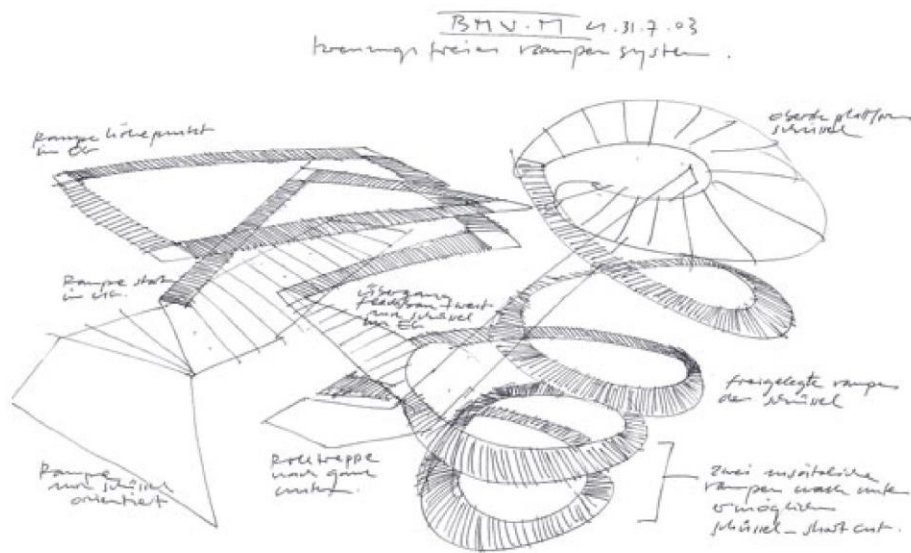 BMW.M 21.31.7.03
kreuzungsfreies rampensystem.
Rampe höhepunkt
im EG
oberste plattform
schüssel
Rampe start
im UG.
übergang
nach schüssel
im EG
freigelegte rampen
der schüssel
Rampe
zur schüssel
orientiert
Rolltreppe
nach ganz
unten.
zwei zusätzliche
rampen nach unten
ermöglichen
schüssel-short cut.